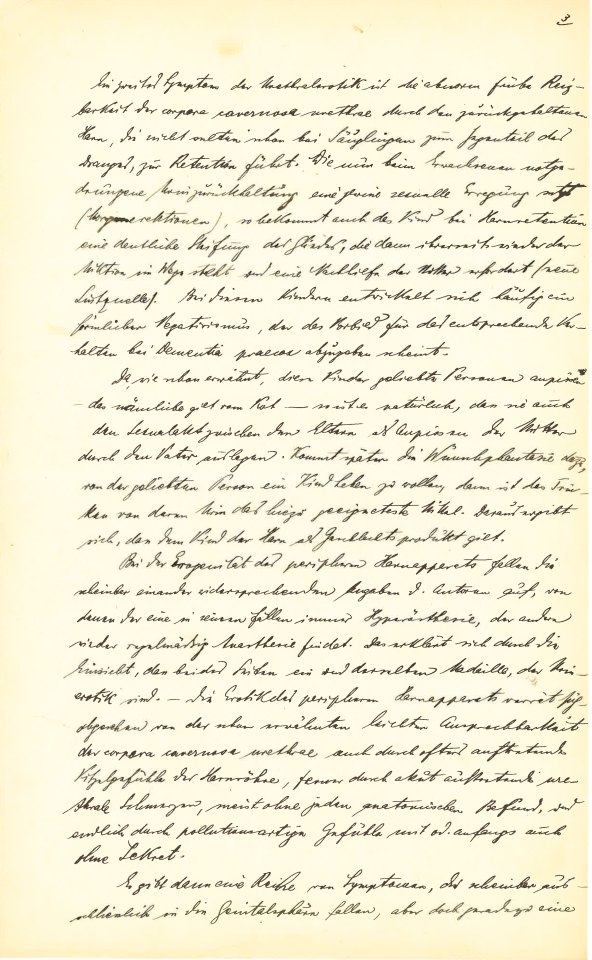 3
Ein zweites Symptom der Urethralerotik ist die abnorm frühe Reiz-
barkeit der corpora cavernosa urethrae durch den zurückgehaltenen
Harn, die nicht selten schon bei Säuglingen zum Gegenteil des
Dranges, zur Retention führt. Die nun beim Erwachsenen notge-
drungene Harnzurückhaltung eine sexuelle Erregung setzt
(Morgenerektionen), so bekommt auch das Kind bei Harnretention
eine deutliche Steifung des Gliedes, die dann ihrerseits wieder der
Miktion im Wege steht und eine Nachhilfe der Mutter erfordert (neue
Lustquelle). Bei diesen Kindern entwickelt sich häufig ein
förmlicher Negativismus, der das Vorbild für das entsprechende Ver-
halten bei Dementia praecox abzugeben scheint.
Da, wie schon erwähnt, diese Kinder geliebte Personen anpissen
– das nämliche gilt vom Kot – so ist es natürlich, dass sie auch
den Sexualakt zwischen den Eltern als Anpissen der Mutter
durch den Vater auslegen. Kommt später die Wunschphantasie dazu,
von der geliebten Person ein Kind haben zu wollen, dann ist das Trin-
ken von deren Urin das hiezu geeignetste Mittel. Daraus ergibt
sich, dass dem Kind der Harn als Geschlechtsprodukt gilt.
Bei der Erogenität des peripheren Harnapparats fallen die
scheinbar einander widersprechenden Angaben d. Autoren auf, von
denen der eine in seinen Fällen immer Hyperästhesie, der andere
wieder regelmäßig Anästhesie findet. Das erklärt sich durch die
Einsicht, dass beides Seiten ein und derselben Medaille, der Urin-
erotik sind. – Die Erotik des peripheren Harnapparats verrät sich
abgesehen von der schon erwähnten leichten Ansprechbarkeit
der corpora cavernosa urethrae auch durch öfters auftretende
Kitzelgefühle der Harnröhre, ferner durch akut auftretende ure-
thrale Schmerzen, meist ohne jeden anatomischen Befund, und
endlich durch pollutionsartige Gefühle mit od. anfangs auch
ohne Sekret.
Es gibt dann eine Reihe von Symptomen, die scheinbar aus-
schliesslich in die Genitalsphäre fallen, aber doch geradezu eine